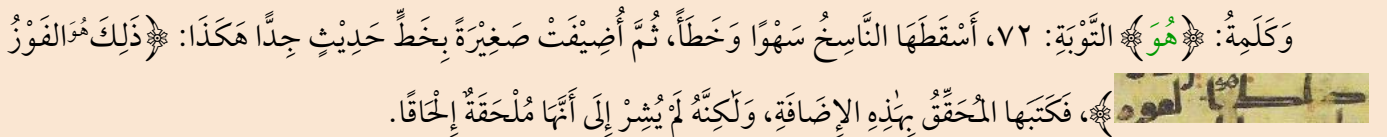 وَكَلِمِةُ: ﴿هُوَ﴾ التَّوْبَةِ: ٧٢، أَسْقَطَهَا النَّاسِخُ سَهْوًا وَخَطَأً، ثُمَّ أُضِيْفَتْ صَغِيْرَةً بِخَطٍّ حَدِيْثٍ جِدًّا هَكَذَا: ﴿ذَلِكَ هُوَ الفَوْزُ
﴾، فَكَتَبَها المُحَقِّقُ بِهَٰذِهِ الإِضَافَةِ، وَلَٰكِنَّهُ لَمْ يُشِرْ إِلَى أَنَّهَا مُلْحَقَةٌ إِلْحَاقًا.